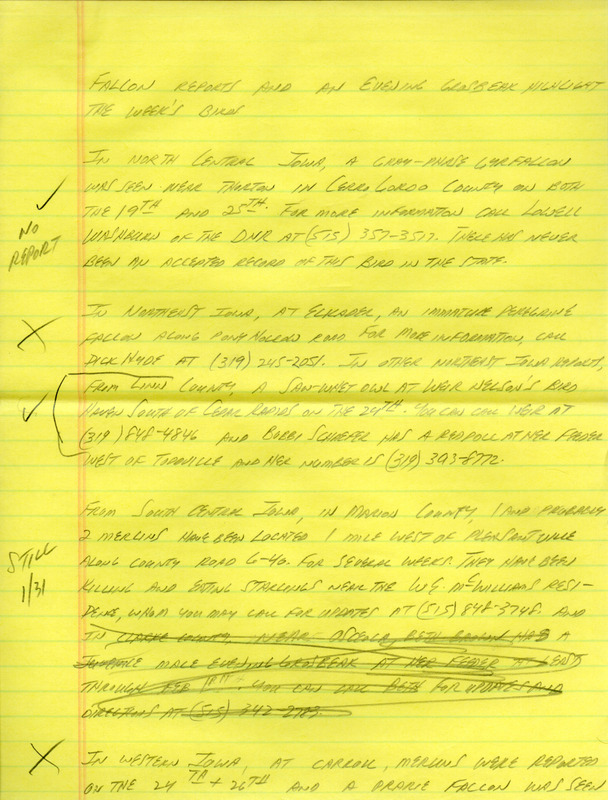 FALCON REPORTS AND AN EVENING GROSBEAK HIGHLIGHT
THE WEEK'S BIRDS
IN NORTH CENTRAL IOWA, A GRAY-PHASE GYRFALCON
WAS SEEN NEAR THORTON IN CERRO GORDO COUNTY ON BOTH
THE 19TH AND 25TH. FOR MORE INFORMATION CALL LOWELL
WASHBURN OF THE DNR AT (515) 357-3517. THERE HAS NEVER
BEEN AN ACCEPTED RECORD OF THIS BIRD IN THE STATE.
NO
REPORT
IN NORTHEAST IOWA, AT ELKADER, AN IMMATURE PEREGRINE
FALCON ALONG PONY HOLLOW ROAD FOR MORE INFORMATION, CALL
DICK HYDE AT (319) 245-2051. IN OTHER NORTHEAST IOWA REPORTS,
FROM LINN COUNTY, A SAW-WHET OWL AT WEIR NELSON'S BIRD
HAVEN SOUTH OF CEDAR RAPIDS ON THE 24TH. YOU CAN CALL WEIR AT
(319) 848-4846 AND BOBBI SCHAEFER HAS A REDPOLL AT HER FEEDER
WEST OF TODDVILLE AND HER NUMBER IS (319) 393-8772.
FROM SOUTH CENTRAL IOWA, IN MARION COUNTY, 1 AND PROBABLY
2 MERLINS HAVE BEEN LOCATED 1 MILE WEST OF PLEASANTVILLE
ALONG COUNTY ROAD G-40. FOR SEVERAL WEEKS. THEY HAVE BEEN
KILLING AND EATING STARLINGS NEAR THE W.G. McWILLIAMS RESI-
DENCE, WHOM YOU MAY CALL FOR UPDATES AT (515) 848-3748. AND
STILL
1/31
IN CLARKE COUNTY, NEAR OSCEOLA, BETH BROWN HAS A
MALE EVENING GROSBEAK AT HER FEEDER AT LEAST
THROUGH THE YOU CAN CALL BETH FOR UPDATES AND
DIRECTIONS AT (515) 342-
IN WESTERN IOWA, AT CARROLL, MERLINS WERE REPORTED
ON THE 24TH + 26TH AND A PRAIRIE FALCON WAS SEEN